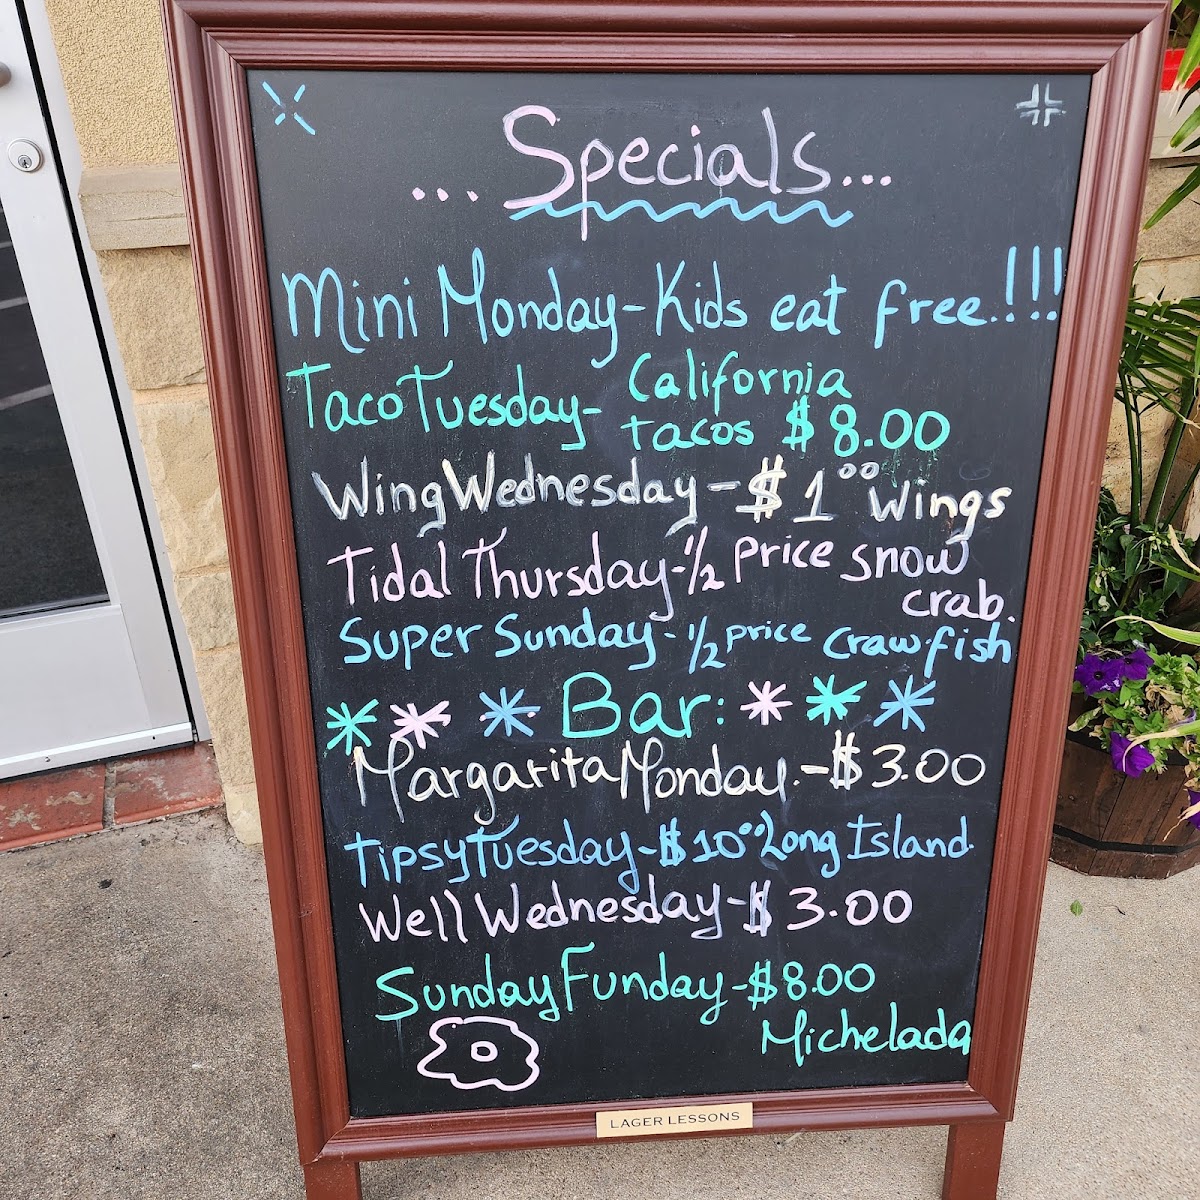 ...Specials...
Mini Monday-Kids eat free.!!!
Taco Tuesday- California
tacos $8.00
Wing Wednesday-$1°° Wings
Tidal Thursday-1/2 Price snow
crab.
Super Sunday-1/2 price Crawfish
Bar:
Margarita Monday.-$3.00
Tipsy Tuesday-$10°° Long Island.
Well Wednesday-$3.00
Sunday Funday-$8.00
Michelada
LAGER LESSONS